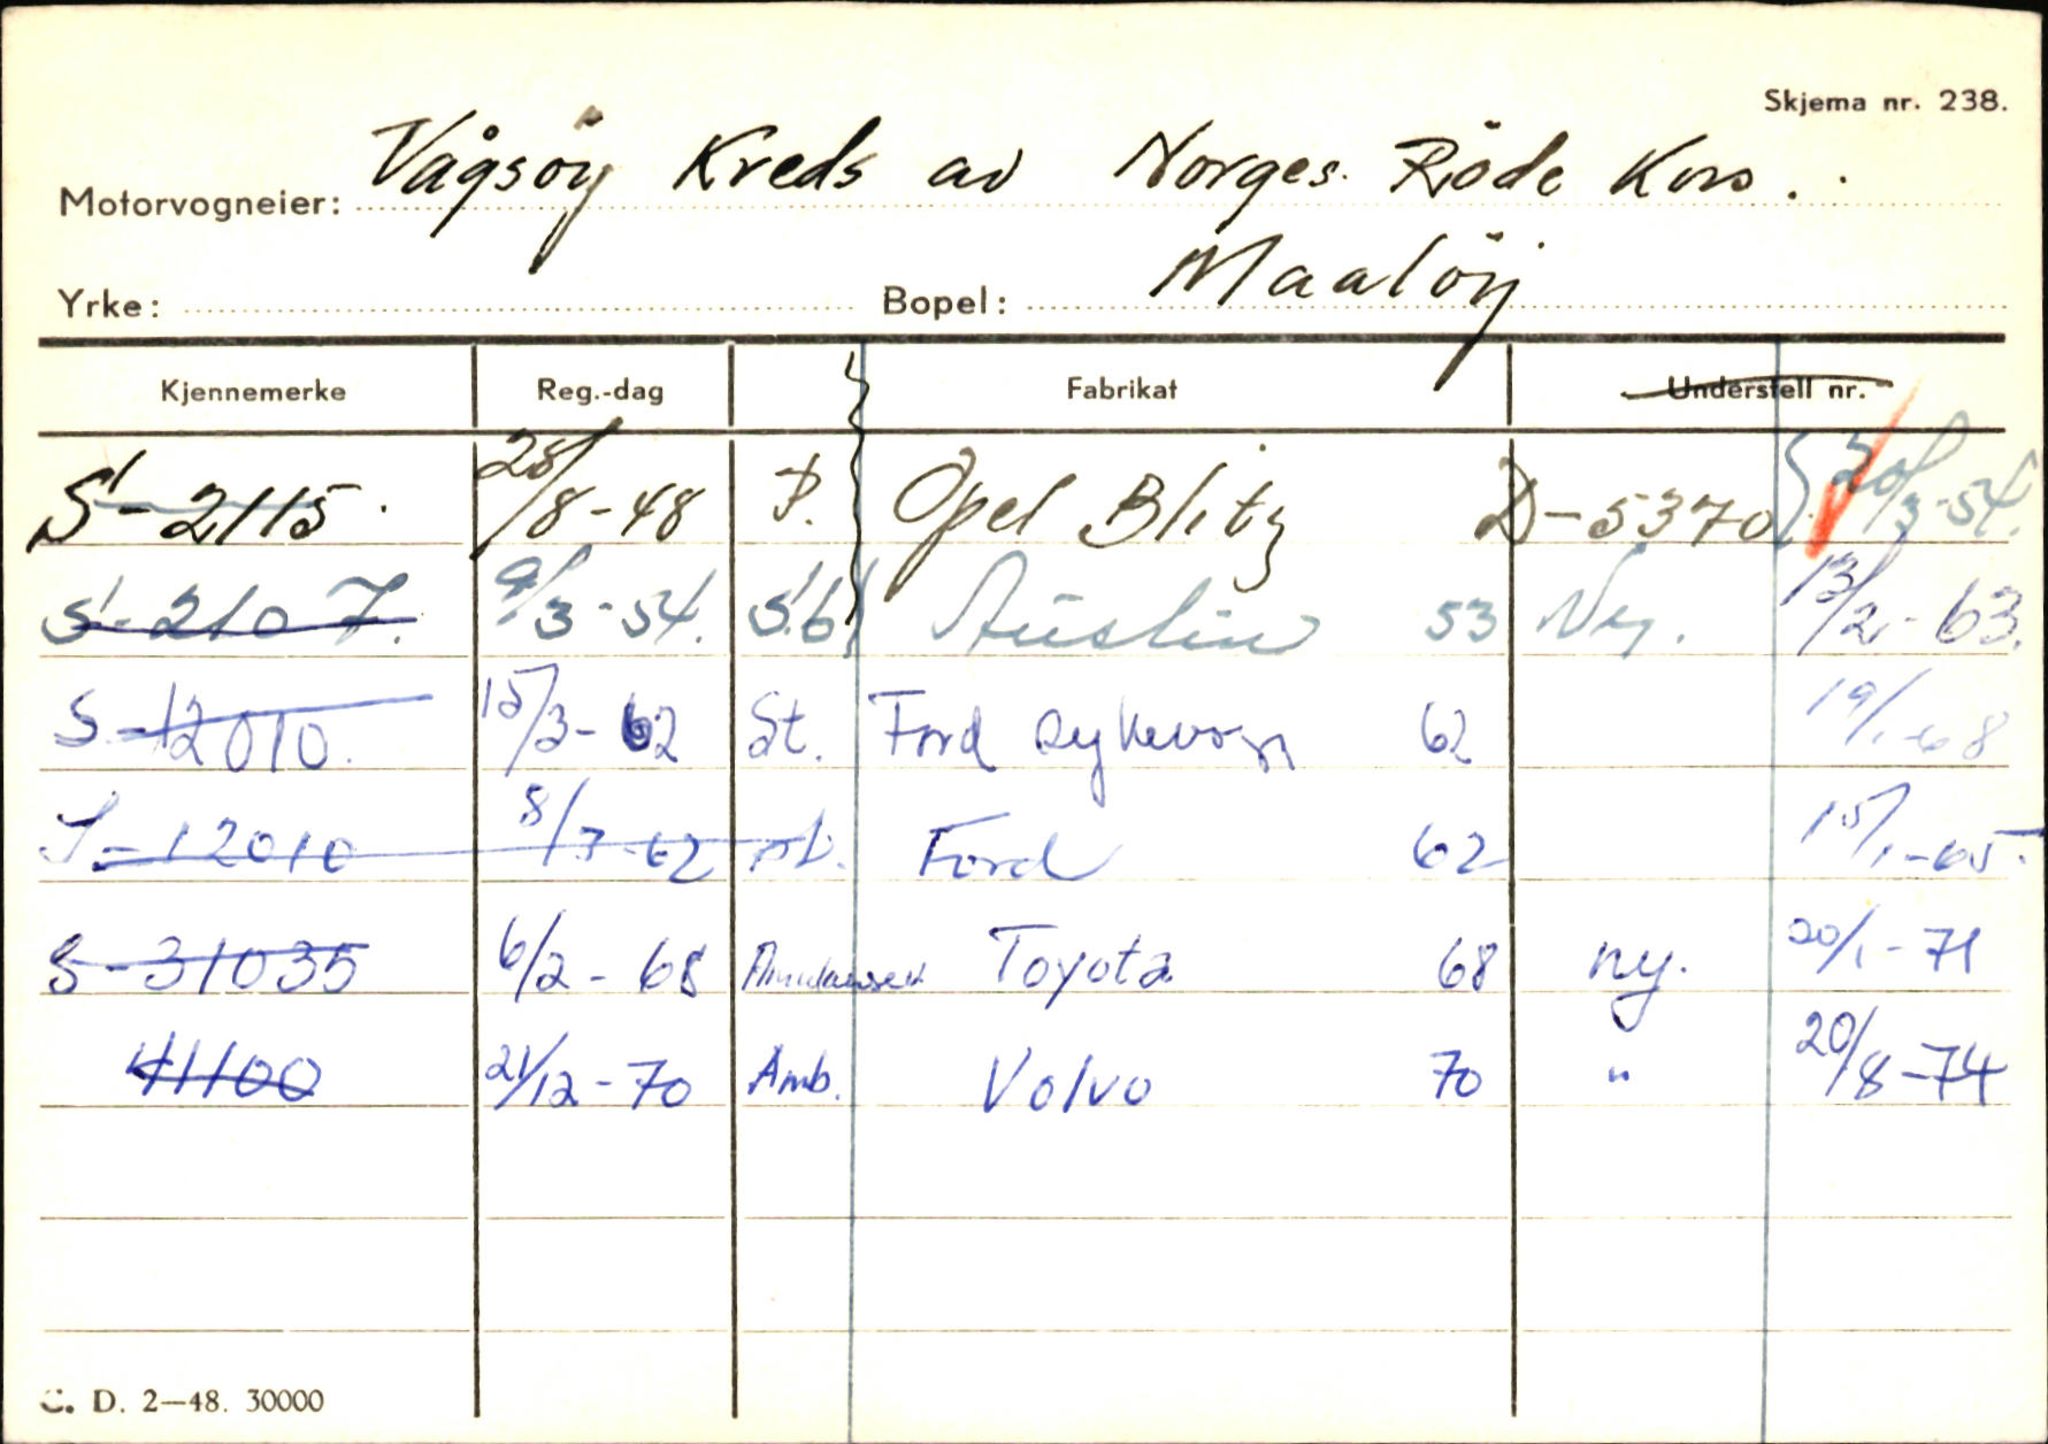 Skjema nr. 238.
Motorvogneier: Vågsöy Kreds av Norges Röde Kors.
Yrke: Bopel: Maalöy
Kjennemerke Reg.-dag Fabrikat Understell nr.
S-2115. 28/8-48 P. Opel Blitz D-5370 20/3-54.
S-2107. 9/3-54. S.b. Austin 53 Ny. 13/2.-63.
S-12010. 15/3-62 St. Ford sykevogn 62 19/1-68
S-12010 8/3-62 Ford 62 15/1-65.
S-31035 6/2-68 Toyota 68 ny. 20/1-71
41100 21/12-70 Amb. Volvo 70 " 20/8-74
C. D. 2—48. 30000